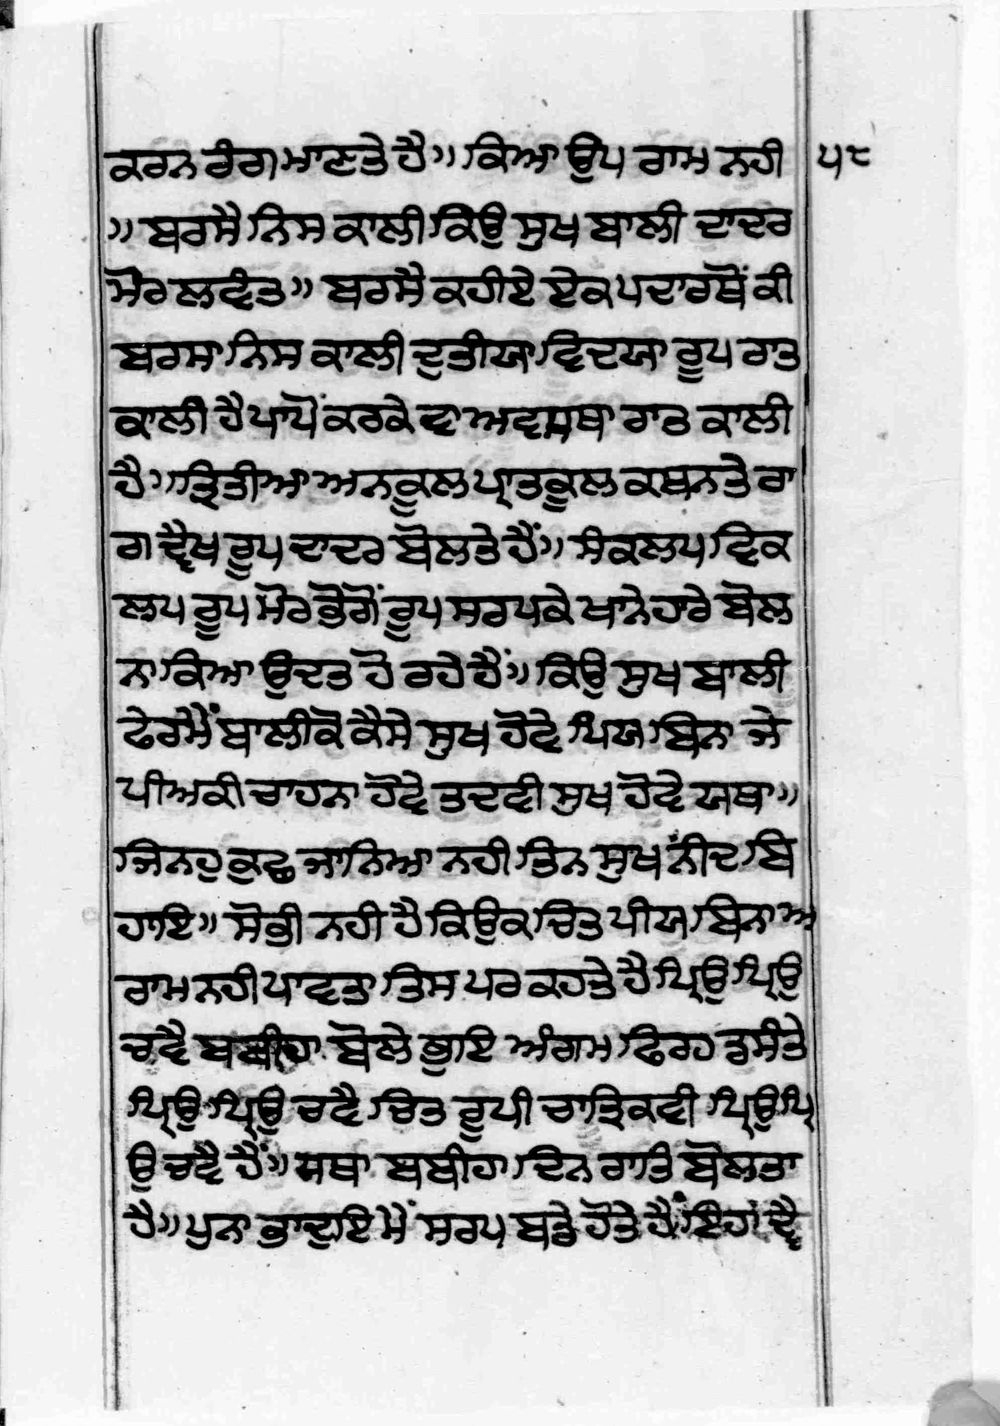 ਕਰਨ ਰੰਗ ਮਾਣਤੇ ਹੈ॥ ਕਿਆ ਉਪ ਰਾਮ ਨਹੀ ੫੮
॥ ਬਰਸੈ ਨਿਸ ਕਾਲੀ ਕਿਉ ਸੁਖ ਬਾਲੀ ਦਾਦਰ
ਮੋਰ ਲਵੰਤ॥ ਬਰਸੈ ਕਹੀਏ ਏਕ ਪਦਾਰਥੋਂ ਕੀ
ਬਰਸਾ ਨਿਸ ਕਾਲੀ ਦੁਤੀਯਾ ਵਿਦਯਾ ਰੂਪ ਰਾਤ
ਕਾਲੀ ਹੈ ਪਾਪੋਂ ਕਰਕੇ ਵਾ ਅਵਸਥਾ ਰਾਤ ਕਾਲੀ
ਹੈ॥ ਤ੍ਰਿਤੀਆ ਅਨਕੂਲ ਪ੍ਰਾਤਕੂਲ ਕਥਨ ਤੇ ਰਾ
ਗ ਦ੍ਵੈਖ ਰੂਪ ਦਾਦਰ ਬੋਲਤੇ ਹੈਂ॥ ਸੰਕਲਪ ਵਿਕ
ਲਪ ਰੂਪ ਮੋਰ ਭੋਗੋਂ ਰੂਪ ਸਰਪਕੇ ਖਾਨੇਹਾਰੇ ਬੋਲ
ਨਾ ਕਿਆ ਉਦਤ ਹੋ ਰਹੇ ਹੈਂ॥ ਕਿਉ ਸੁਖ ਬਾਲੀ
ਫੇਰ ਮੈਂ ਬਾਲੀਕੋ ਕੈਸੇ ਸੁਖ ਹੋਵੇ ਪਿਯ ਬਿਨਾ ਜੇ
ਪੀਅਕੀ ਚਾਹਨਾ ਹੋਵੇ ਤਦਵੀ ਸੁਖ ਹੋਵੇ ਯਥਾ॥
ਜਿਨਹੁ ਕੁਛ ਜਾਨਿਆ ਨਹੀ ਤਿਨ ਸੁਖ ਨੀਂਦ ਬਿ
ਹਾਇ॥ ਸੋਭੀ ਨਹੀ ਹੈ ਕਿਉਕ ਚਿਤ ਪੀਯ ਬਿਨਾ ਅ
ਰਾਮ ਨਹੀ ਪਾਵਤਾ ਤਿਸ ਪਰ ਕਹਤੇ ਹੈ ਪ੍ਰਿਉ ਪ੍ਰਿਉ
ਚਵੈ ਬਬੀਹਾ ਬੋਲੇ ਭੁਇ ਅੰਗਮ ਫਿਰਹ ਡਸੰਤੇ
ਪ੍ਰਿਉ ਪ੍ਰਿਉ ਚਵੈ ਚਿਤ ਰੂਪੀ ਚਾਤ੍ਰਿਕਵੀ ਪ੍ਰਿਉ ਪ੍ਰਿ
ਉ ਚਵੈ ਹੈਂ॥ ਯਥਾ ਬਬੀਹਾ ਦਿਨ ਰਾਤਿ ਬੋਲਤਾ
ਹੈ॥ ਪੁਨਾ ਭਾਦੁਇ ਮੈਂ ਸਰਪ ਬਡੇ ਹੋਤੇ ਹੈਂ ਇਹਾਂ ਦ੍ਵੈ